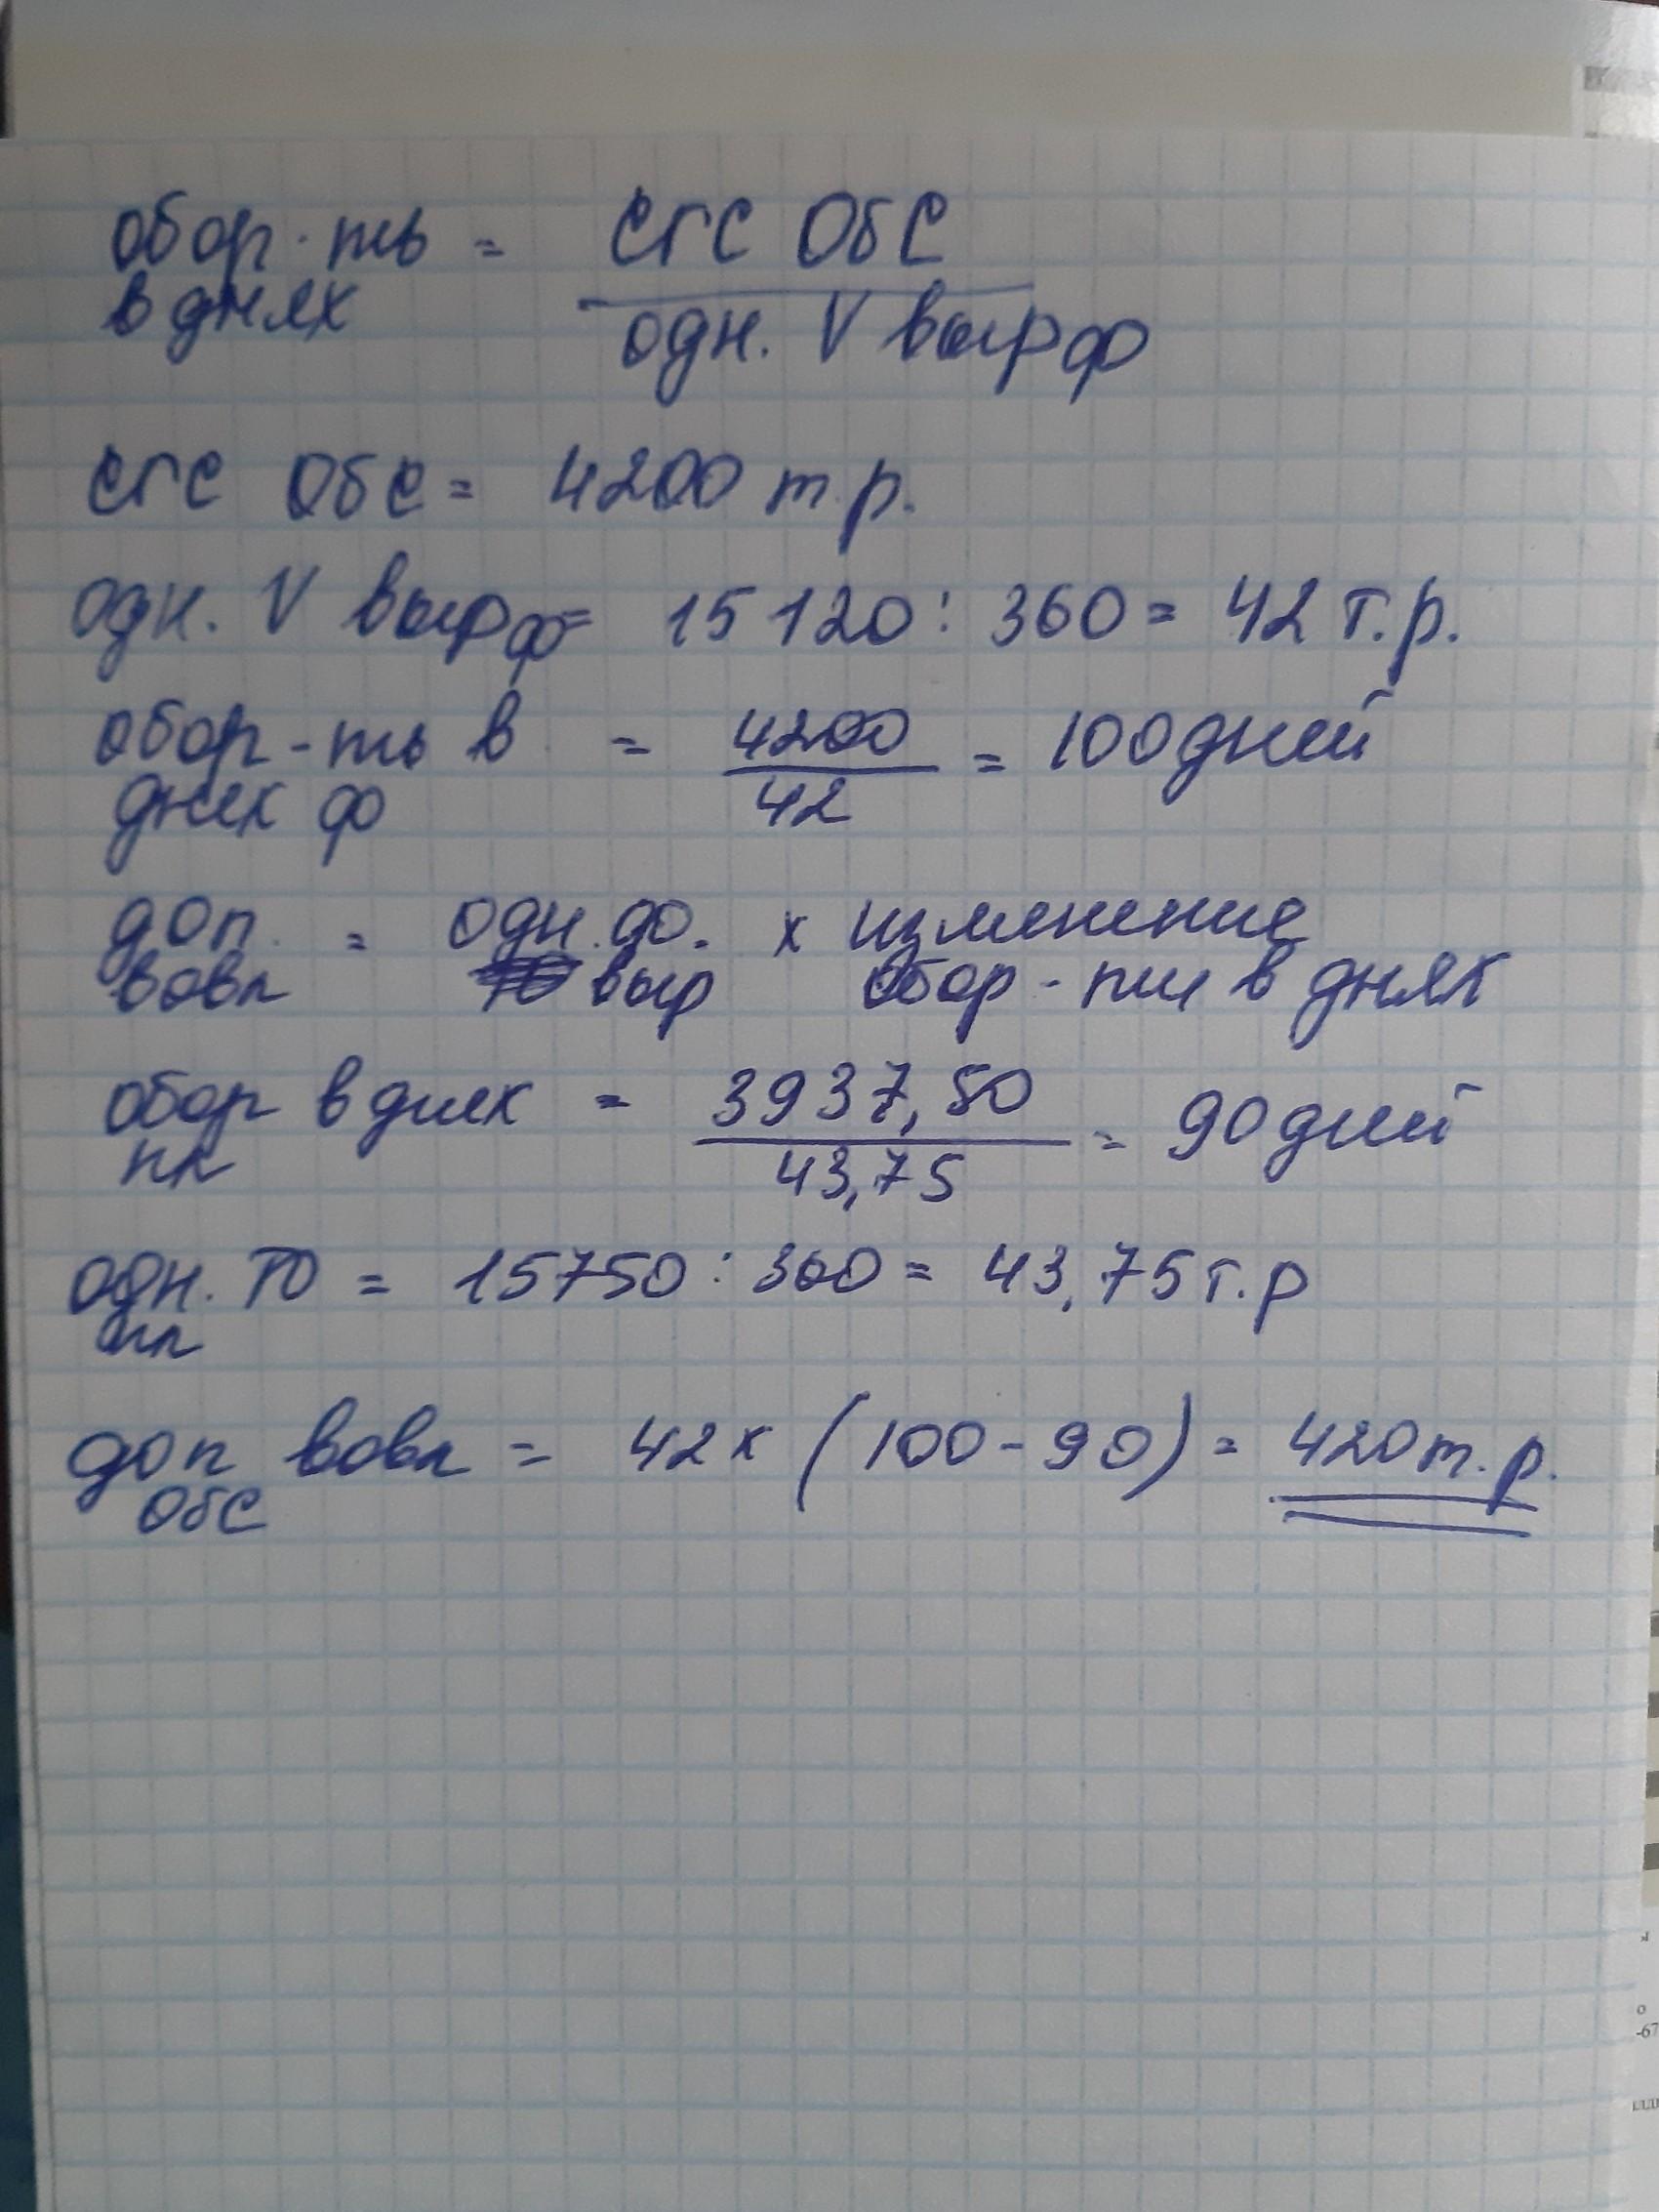 обор-ть = СГС ОбС
в днях одн. V выр ф
СГС ОбС = 4200 т.р.
одн. V выр ф = 15120 : 360 = 42 т.р.
обор-ть в = 4200 = 100 дней
днях ф 42
доп. = одн. ф. х изменение
вовл выр обор-ти в днях
обор в днях = 3937,50 = 90 дней
пл 43,75
одн. ТО = 15750 : 360 = 43,75 т.р
пл
доп вовл = 42 х (100 - 90) = 420 т.р.
ОбС
-67